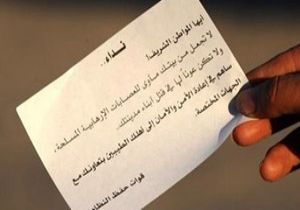 نـداء..
أيها المواطن الشريف!
لا تجعل من بيتك مأوى للعصابات الإرهابية المسلحة.
ولا تكن عونا لها في قتل ابناء مدينتك.
ساهم في إعادة الأمن والأمان الى أهلك الطيبين بتعاونك مع
الجهات المختصة.
قوات حفظ النظام